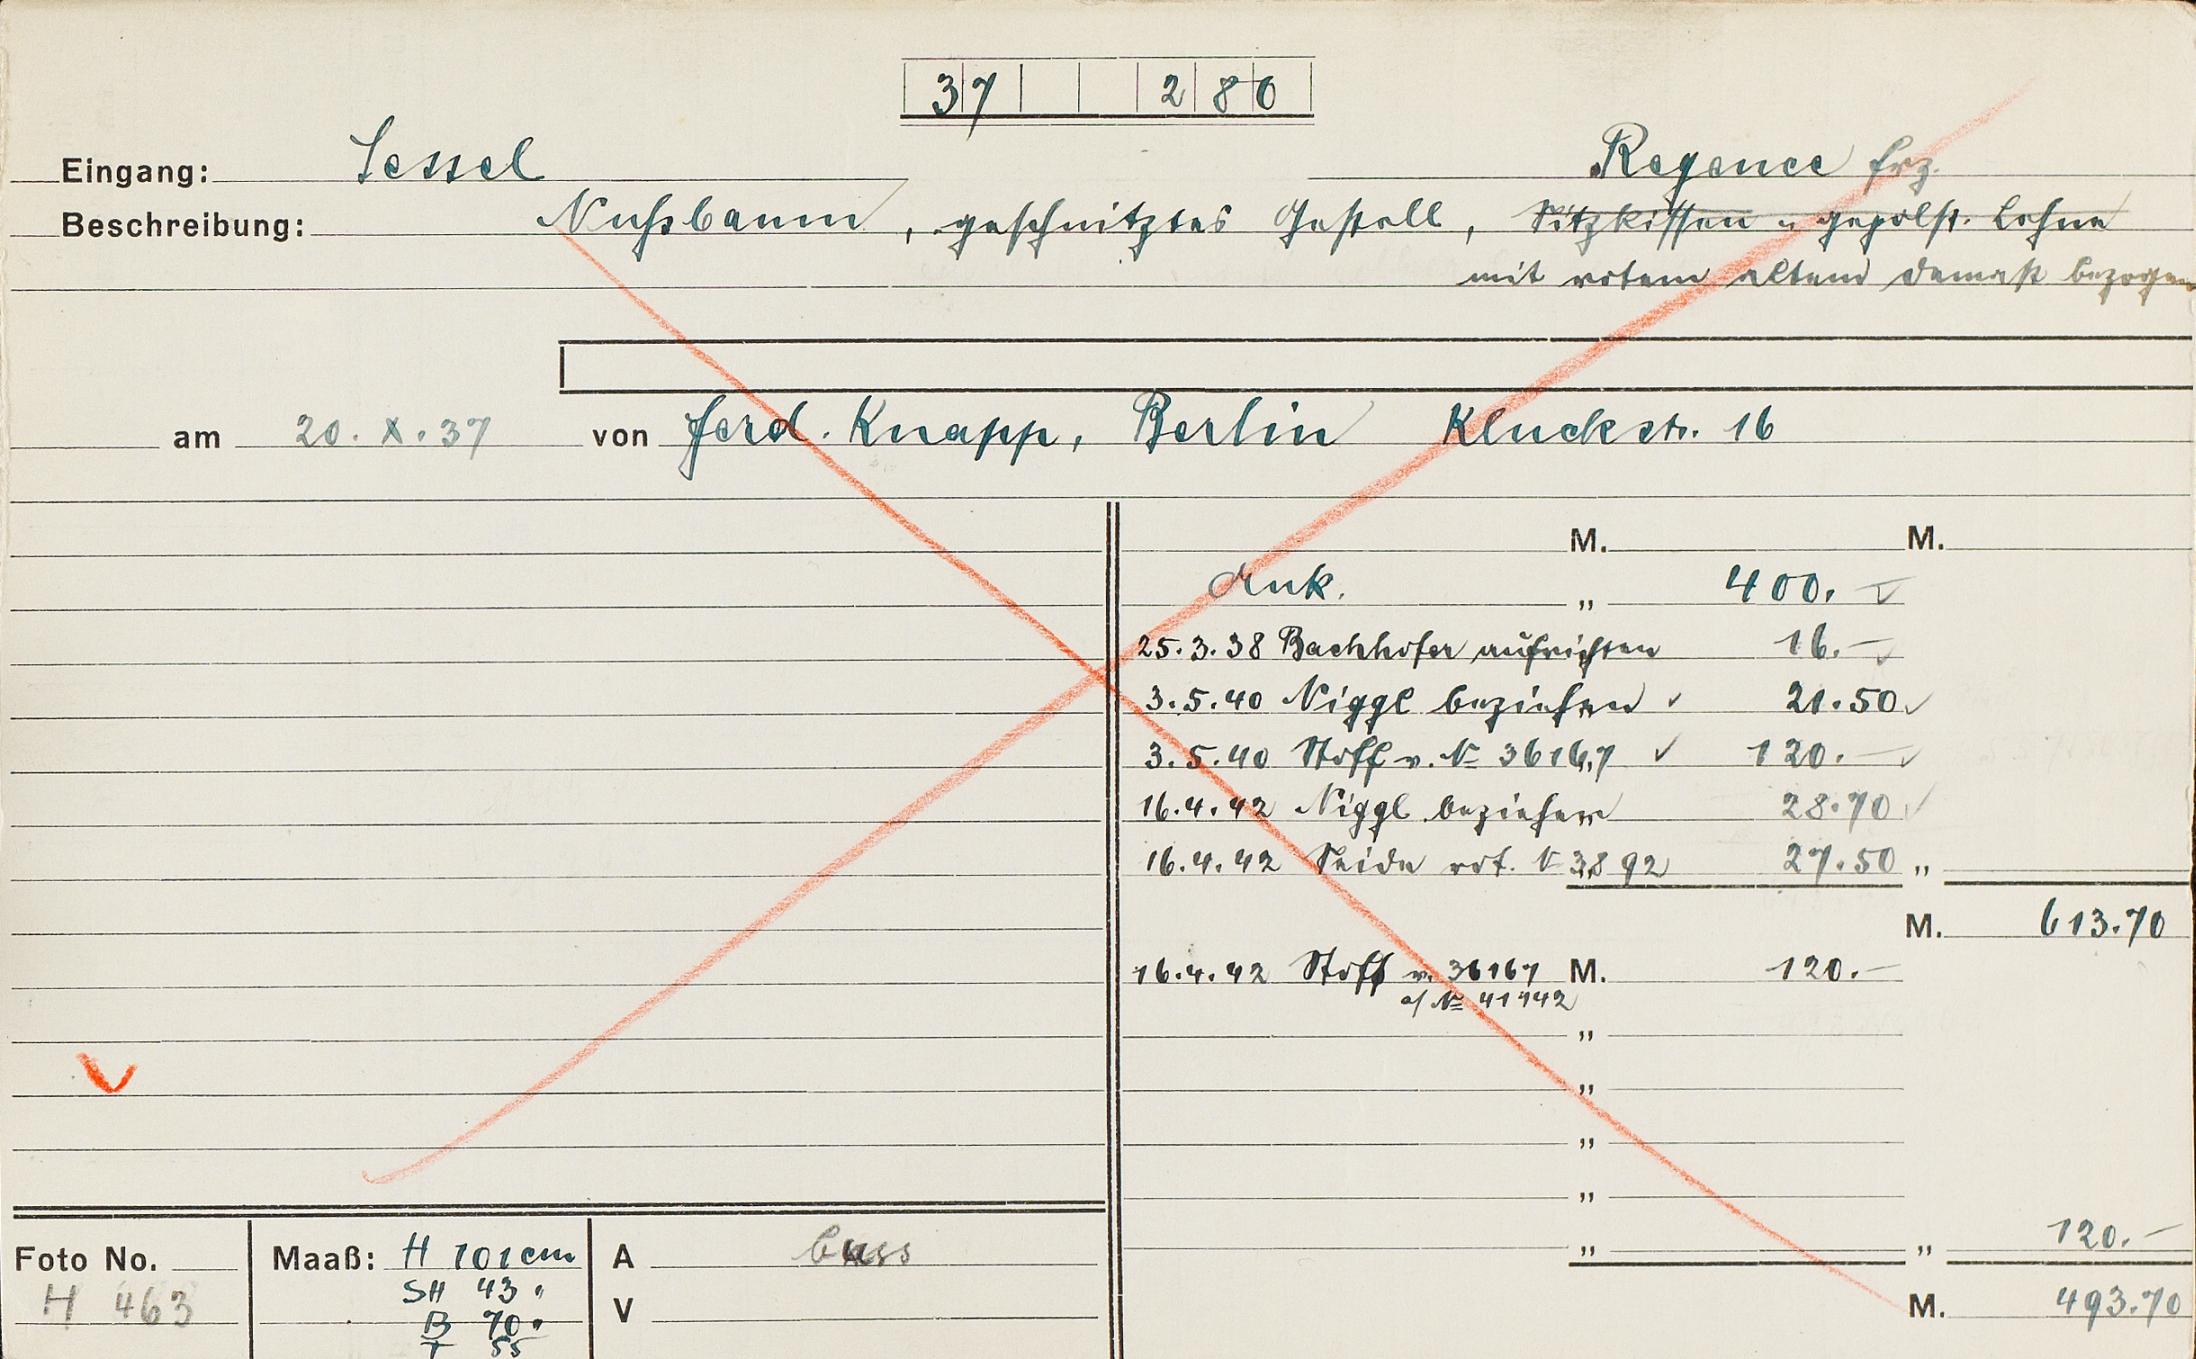 37 280
Eingang: Sessel Regence frz.
Beschreibung: Nußbaum, geschnitztes Gestell, Sitzkissen u. gepolst. Lehne
mit rotem altem Damast bezogen
am 20. X. 37 von Ferd. Knapp, Berlin Kluckstr. 16
M. M.
Ank. „ 400.—
25.3.38 Bachhofer aufrichten 16.—
3.5.40 Niggl beziehen ✓ 21.50
3.5.40 Stoff v. No 36167 ✓ 120.—
16.4.42 Niggl beziehen 28.70
16.4.42 Seide rot. N 3892 27.50 „
M. 613.70
16.4.42 Stoff v. 36167 M. 120.—
a/ No 41142
„
„
„
„
„ „ 120.—
M. 493.70
Foto No. H 463
Maaß: H 101 cm
SH 43 "
B 70 "
T 55
A
V